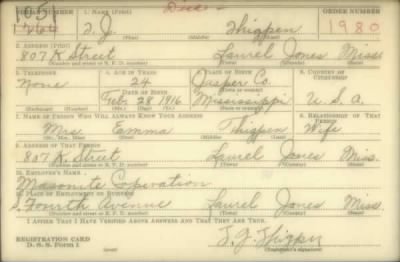 1051 Dec-
SERIAL NUMBER 1. NAME (Print) ORDER NUMBER
T. J. Thigpen 1980
(First) (Middle) (Last)
2. ADDRESS (Print)
807 K Street Laurel Jones Miss
(Number and street or R. F. D. number) (Town) (County) (State)
3. TELEPHONE 4. AGE IN YEARS 5. PLACE OF BIRTH 6. COUNTRY OF CITIZENSHIP
None 24 Jasper Co.
DATE OF BIRTH
Feb. 28 1916 Mississippi U. S. A.
(Exchange) (Number) (Mo.) (Day) (Yr.) (State or country)
7. NAME OF PERSON WHO WILL ALWAYS KNOW YOUR ADDRESS 8. RELATIONSHIP OF THAT PERSON
Mrs. Emma Thigpen Wife
(Mr., Mrs., Miss) (First) (Middle) (Last)
9. ADDRESS OF THAT PERSON
807 K. Street Laurel Jones Miss.
(Number and street or R. F. D. number) (Town) (County) (State)
10. EMPLOYER'S NAME
Masonite Coperation
11. PLACE OF EMPLOYMENT OR BUSINESS
S. Fourth Avenue Laurel Jones Miss.
(Number and street or R. F. D. number) (Town) (County) (State)
I AFFIRM THAT I HAVE VERIFIED ABOVE ANSWERS AND THAT THEY ARE TRUE.
REGISTRATION CARD
D. S. S. Form 1 T. J. Thigpen
(Registrant's signature)